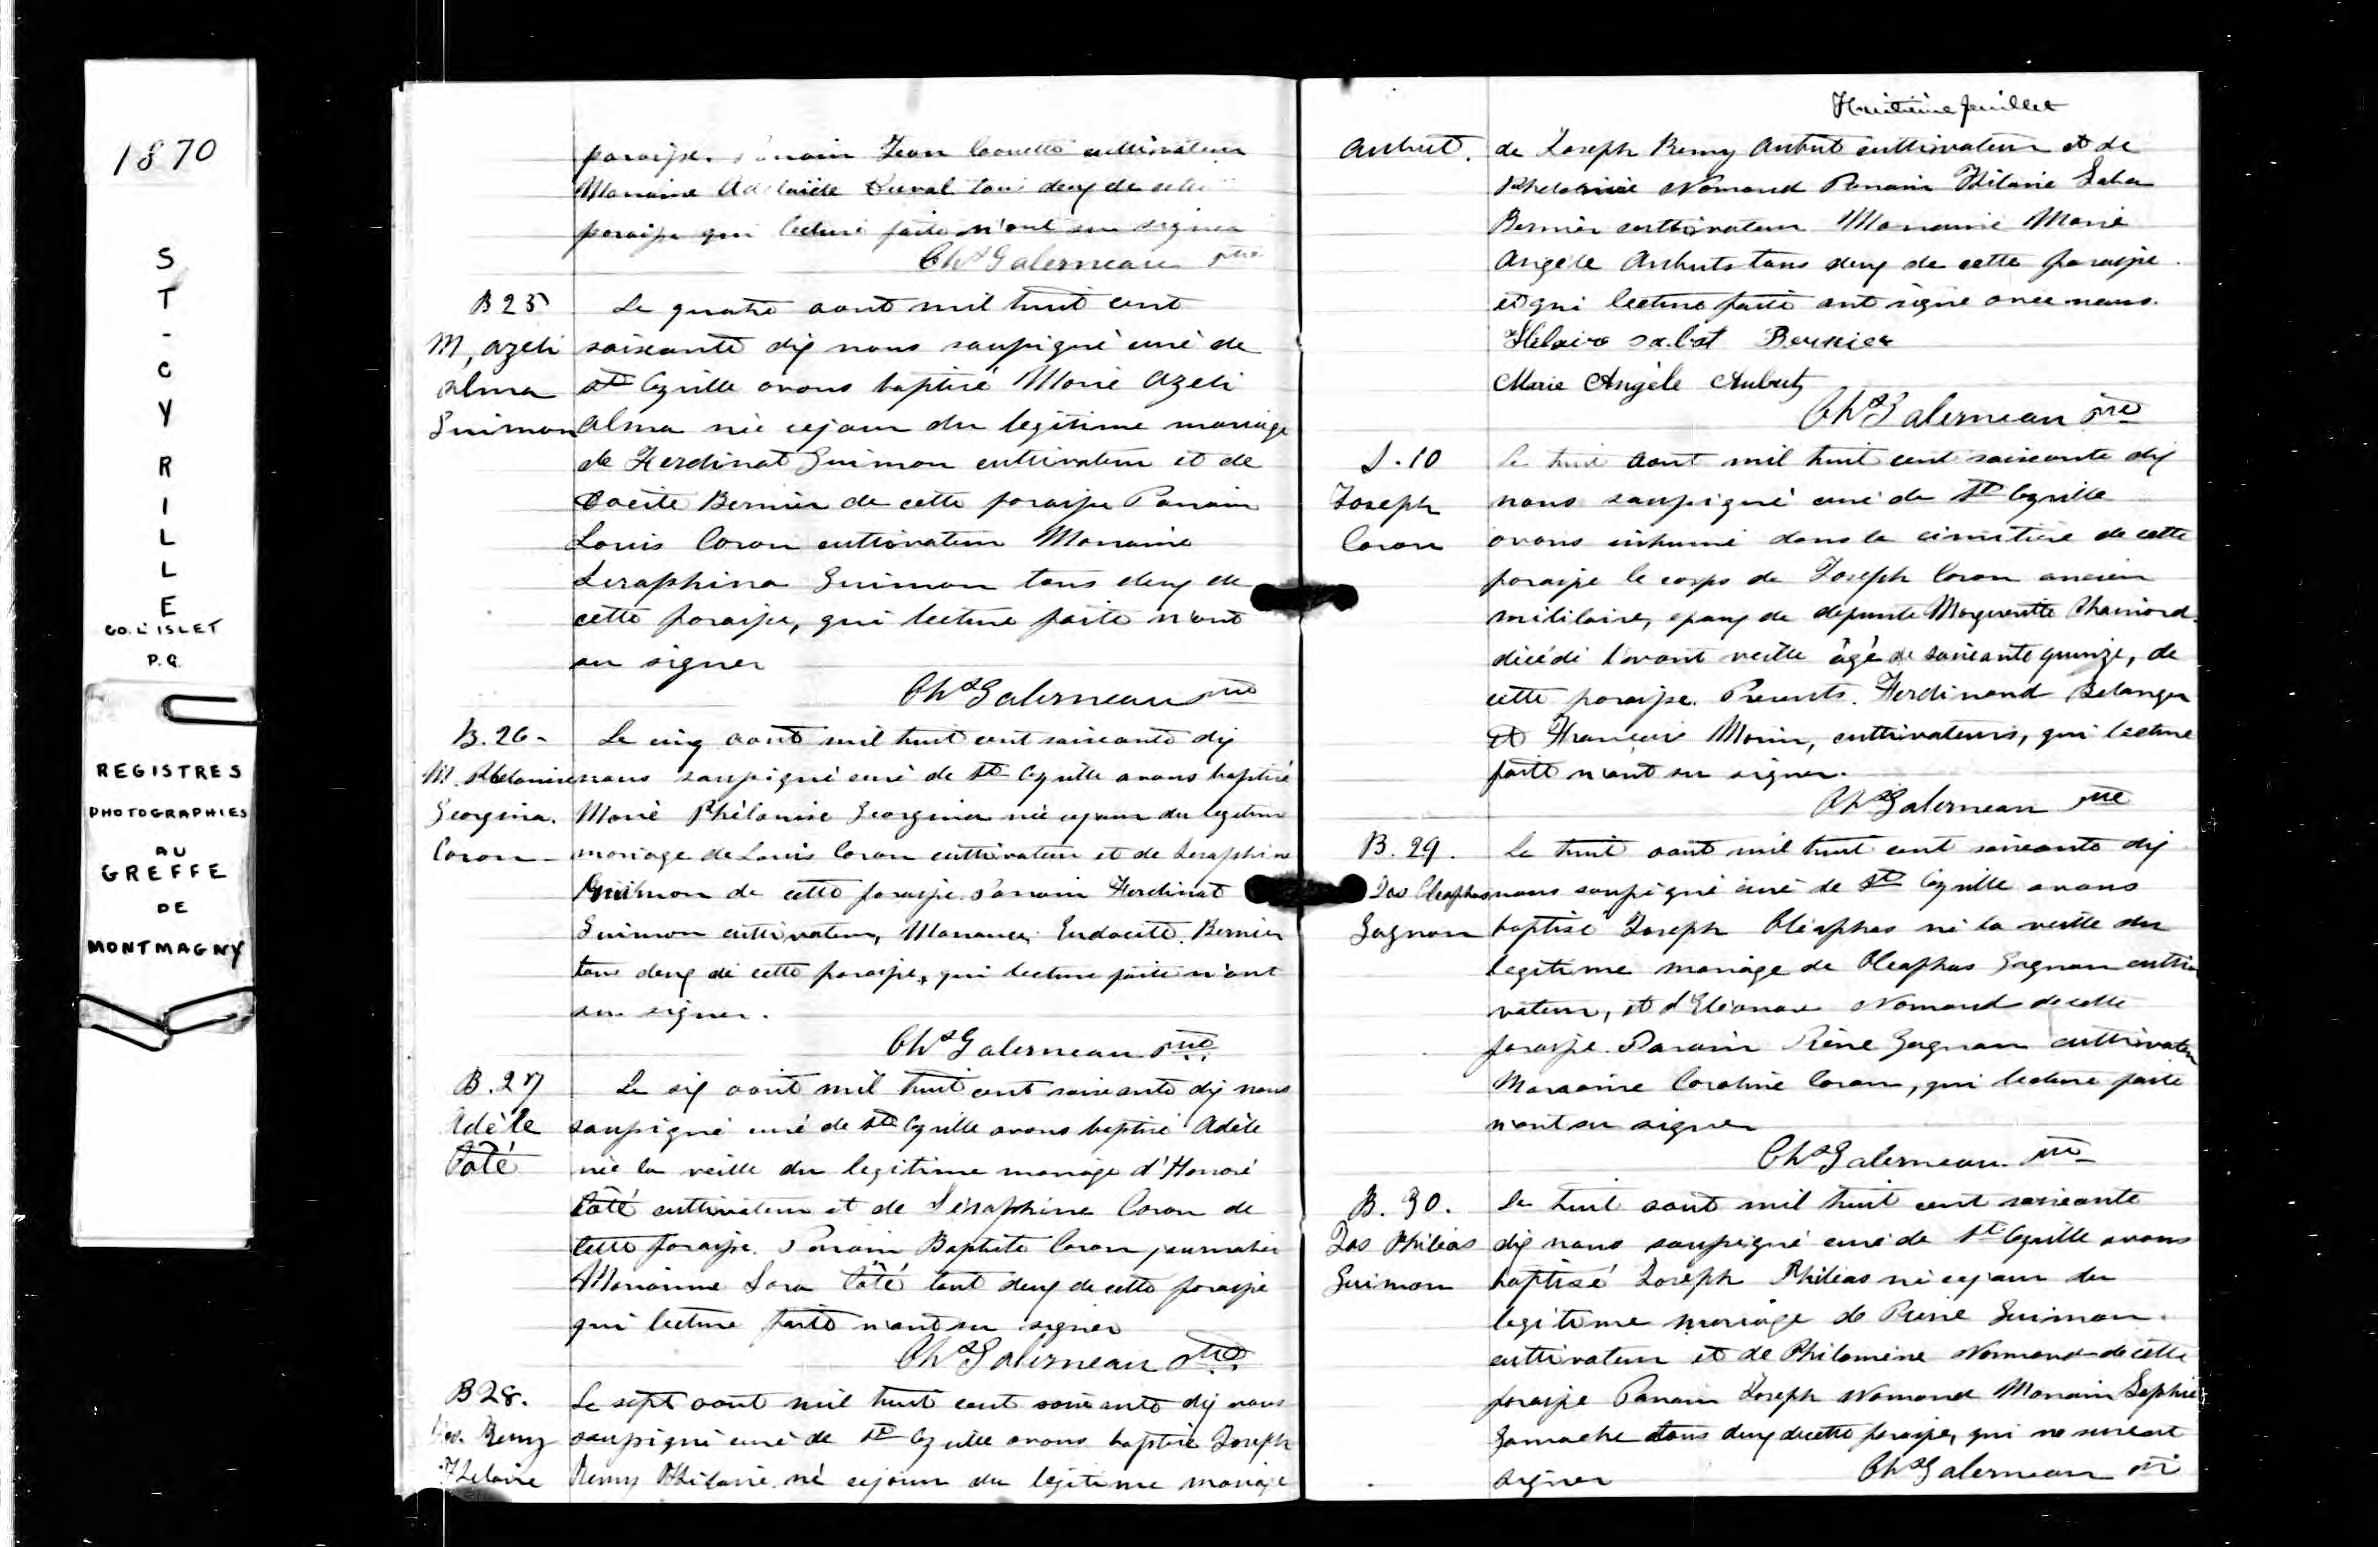 1870
ST-CYRILLE
CO. L'ISLET
P.Q.
REGISTRES
PHOTOGRAPHIES
AU
GREFFE
DE
MONTMAGNY
paroisse. Parrain Jean Caouette cultivateur
Marraine Adelaïde Duval tous deux de cette
paroisse qui lecture faite n'ont su signer
Chs Galerneau ptre
B 25
M, Azeli
Alma
Guimon
Le quatre aout mil huit cent
soixante dix nous soussigné curé de
St Cyrille avons baptisé Marie Azeli
Alma née ce jour du legitime mariage
de Ferdinat Guimon cultivateur et de
Docite Bernier de cette paroisse Parrain
Louis Caron cultivateur Marraine
Seraphina Guimon tous deux de
cette paroisse, qui lecture faite n'ont
su signer
Chs Galerneau ptre
B. 26-
M. Phelonise
Georgina.
Caron-
Le cinq aout mil huit cent soixante dix
nous soussigné curé de St Cyrille avons baptisé
Marie Phélonise Georgina née ce jour du legitime
mariage de Louis Caron cultivateur et de Seraphine
Guimon de cette paroisse. Parrain Ferdinat
Guimon cultivateur, Marraine Eudocite Bernier
tous deux de cette paroisse, qui lecture faite n'ont
su signer.
Chs Galerneau ptre
B. 27
Adèle
Côté
Le six août mil huit cent soixante dix nous
soussigné curé de St Cyrille avons baptisé Adèle
née la veille du legitime mariage d'Honoré
Côté cultivateur et de Séraphine Caron de
cette paroisse. Parrain Baptiste Caron journalier
Marainne Sara Côté tout deux de cette paroisse
qui lecture faite n'ont su signer
Chs Galerneau ptre
B 28.
Jos. Remy
Hilaire
Le sept aout mil huit cent soixante dix nous
soussigné curé de St Cyrille avons baptisé Joseph
Remy Hilaire né ce jour du légitime mariage
Huitième feuillet
Aubut.
de Joseph Remy Aubut cultivateur et de
Normand Parrain Hilaire
Bernier cultivateur Marraine Marie
Angèle Aubuts tous deux de cette paroisse.
et qui lecture faite ont signé avec nous.
Bernier
Marie Angèle Aubut
Chs Galerneau ptre
S. 10
Joseph
Caron
Le huit Aout mil huit cent soixante dix
nous soussigné curé de St Cyrille
avons inhumé dans le cimitière de cette
paroisse le corps de Joseph Caron ancien
militaire, epoux de defunte Marguerite Chainord
décédé l'avant veille âgé de soixante quinze, de
cette paroisse. Presents. Ferdinand Belanger
et François Morin, cultivateurs, qui lecture
faite n'ont su signer.
Chs Galerneau ptre
B. 29.
Jos Cleophas
Gagnon
Le huit aout mil huit cent soixante dix
nous soussigné curé de St Cyrille avons
baptisé Joseph Cléophas né la veille du
legitime mariage de Cleophas Gagnon culti
vateur, et d'Eléonore Normand de cette
paroisse. Parrain Réné Gagnon cultivateur
Marraine Caroline Caron, qui lecture faite
n'ont su signer
Chs Galerneau ptre
B. 30.
Jos Philéas
Guimon
Le huit aout mil huit cent soixante
dix nous soussigné curé de St Cyrille avons
baptisé Joseph Philéas né ce jour du
legitime mariage de Guimon
cultivateur et de Philomène Normand de cette
paroisse Parrain Joseph Normand Marraine Sophie
Gamache tous deux de cette paroisse, qui ne surent
signer
Chs Galerneau ptre